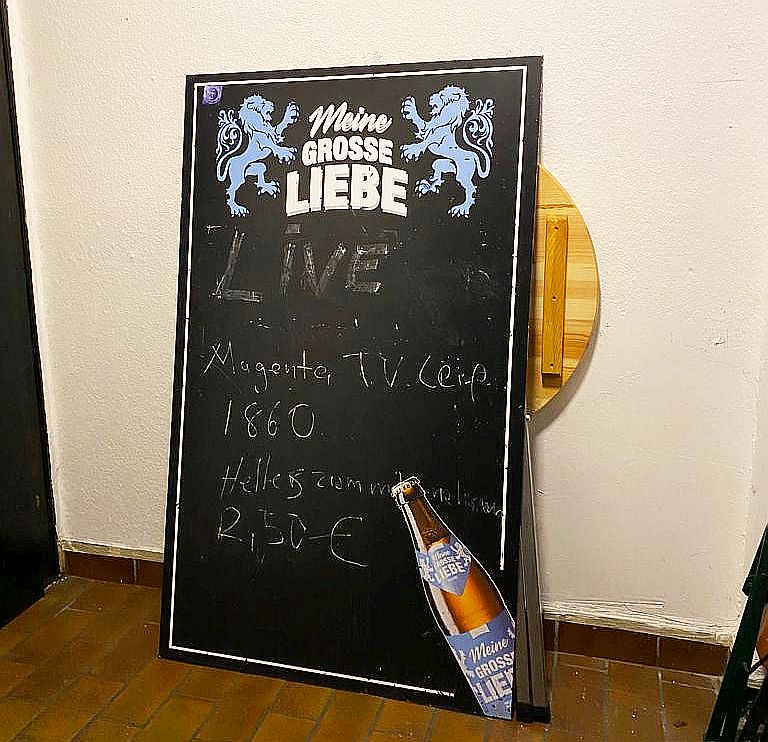 Meine
GROSSE
LIEBE
Live
Magenta T.V. Cup
1860
Helles zum mitnehmen
2,50 €
Meine
GROSSE
LIEBE
Meine
GROSSE
LIEBE